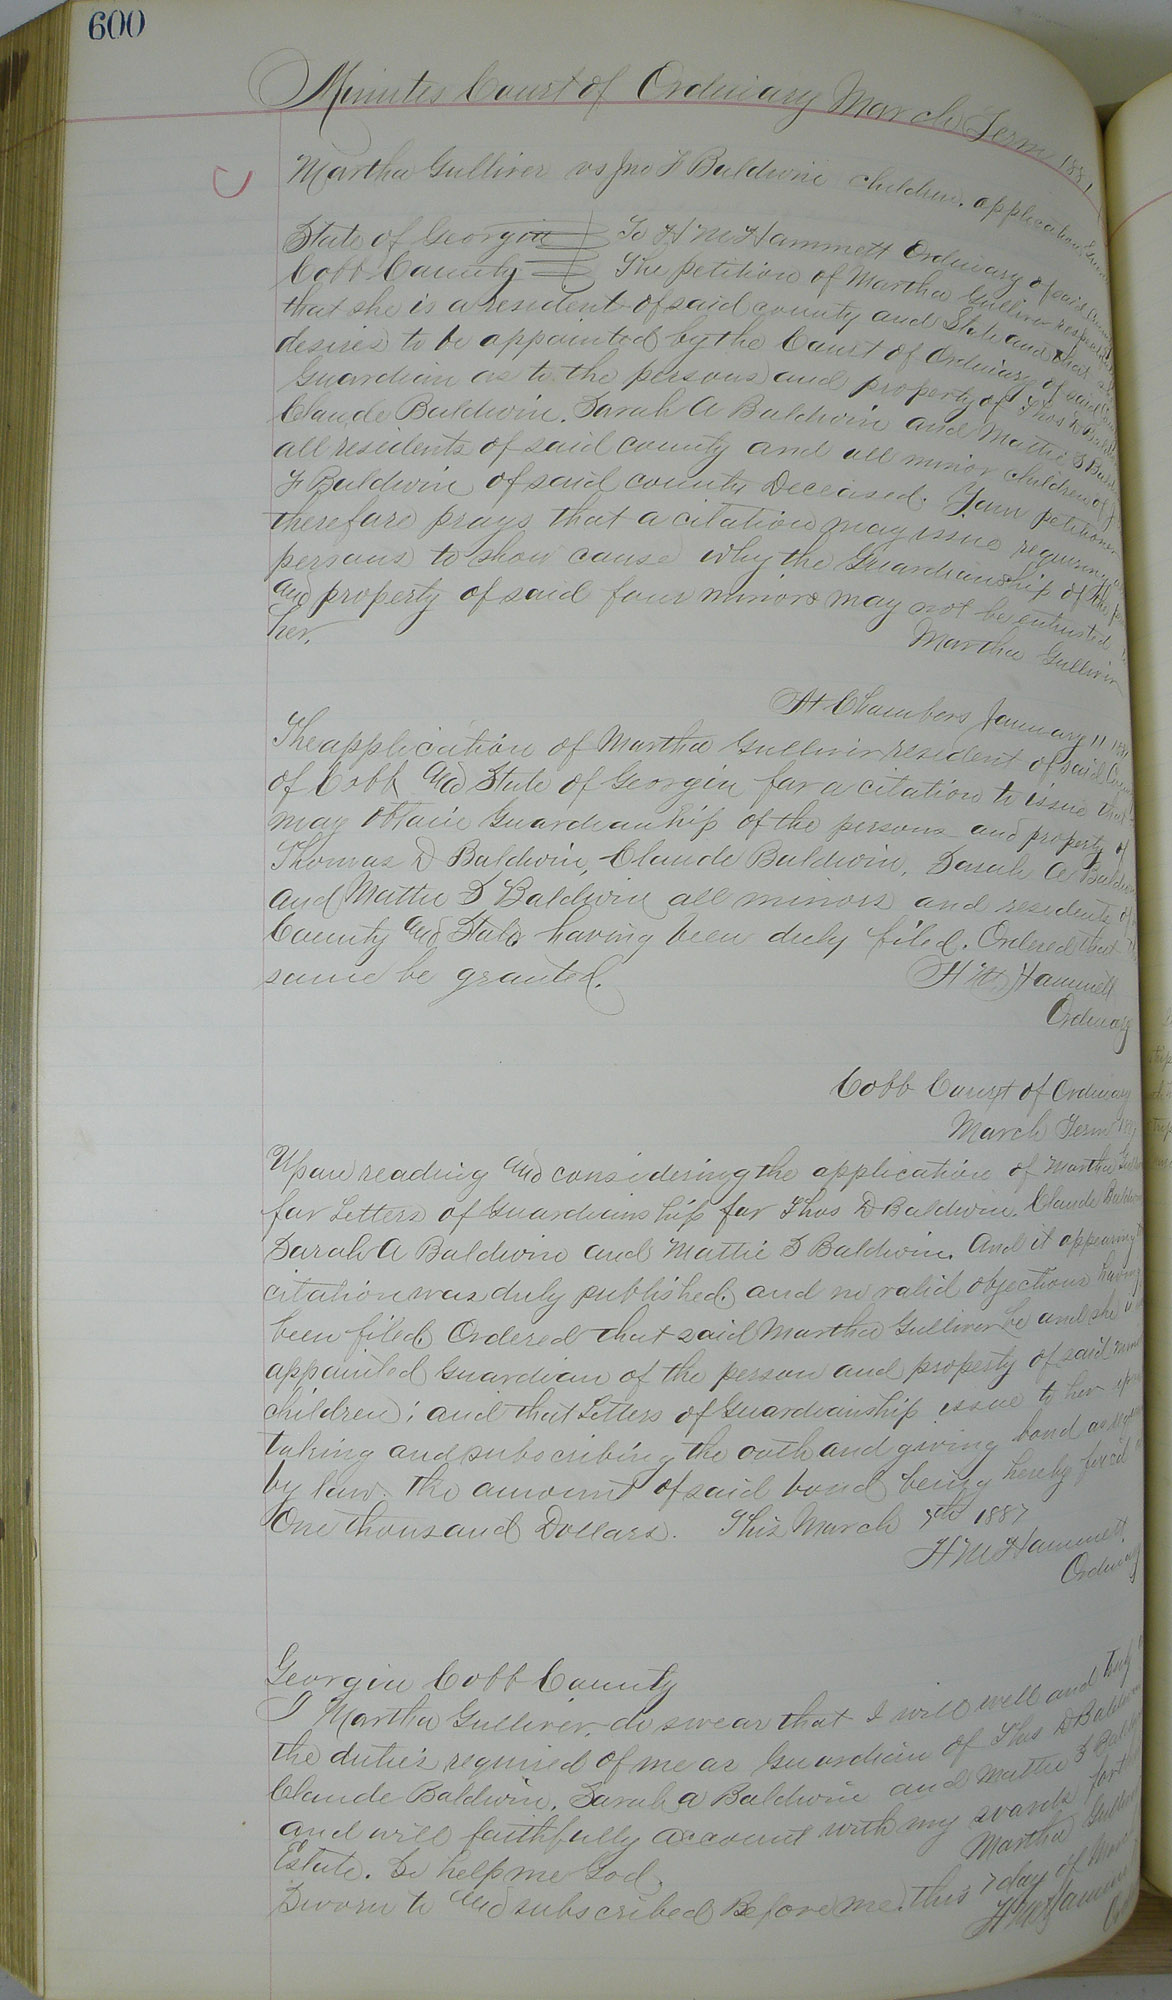 600
Minutes Court of Ordinary March Term 188
Martha Gulliver vs Jno F Baldwin children. application
State of Georgia } To H M Hammett Ordinary of said
Cobb County } The petition of Martha Gulliver
that she is a resident of said county and State and that
desires to be appointed by the Court of Ordinary of said
Guardian as to the persons and property of Thos D
Claude Baldwin. Sarah A Baldwin and Mattie S
all residents of said county and all minor children of J
F Baldwin of said county Deceased. Your petitioner
therefore prays that a citation may issue requiring
persons to show cause why the Guardianship of the
and property of said four minors may not be entrusted to
her. Martha Gulliver
At Chambers January 11
The application of Martha Gulliver resident of said
of Cobb and State of Georgia for a citation to issue that
may obtain Guardianship of the persons and property of
Thomas D Baldwin, Claude Baldwin, Sarah A Baldwin
and Mattie S Baldwin all minors and residents of
County and State having been duly filed. Ordered that
same be granted. H M Hammett
Ordinary
Cobb Court of Ordinary
March Term
Upon reading and considering the application of Martha
for Letters of Guardianship for Thos D Baldwin. Claude Baldwin
Sarah A Baldwin and Mattie S Baldwin. And it appearing
citation was duly published. and no valid objections having
been filed. Ordered that said Martha Gulliver be and she is
appointed Guardian of the person and property of said
children; and that Letters of Guardianship issue to her upon
taking and subscribing the oath and giving bond as
by law. the amount of said bond being hereby fixed
One thousand Dollars. This March 7th 1887
H M Hammett.
Ordinary
Georgia Cobb County
I Martha Gulliver, do swear that I will well and truly
the duties required of me as Guardian of Thos D Baldwin
Claude Baldwin, Sarah A Baldwin and Mattie S
and will faithfully account with my wards for
Estate. So help me God. Martha
Sworn to and subscribed Before me, this 7 day of
H M Hammett